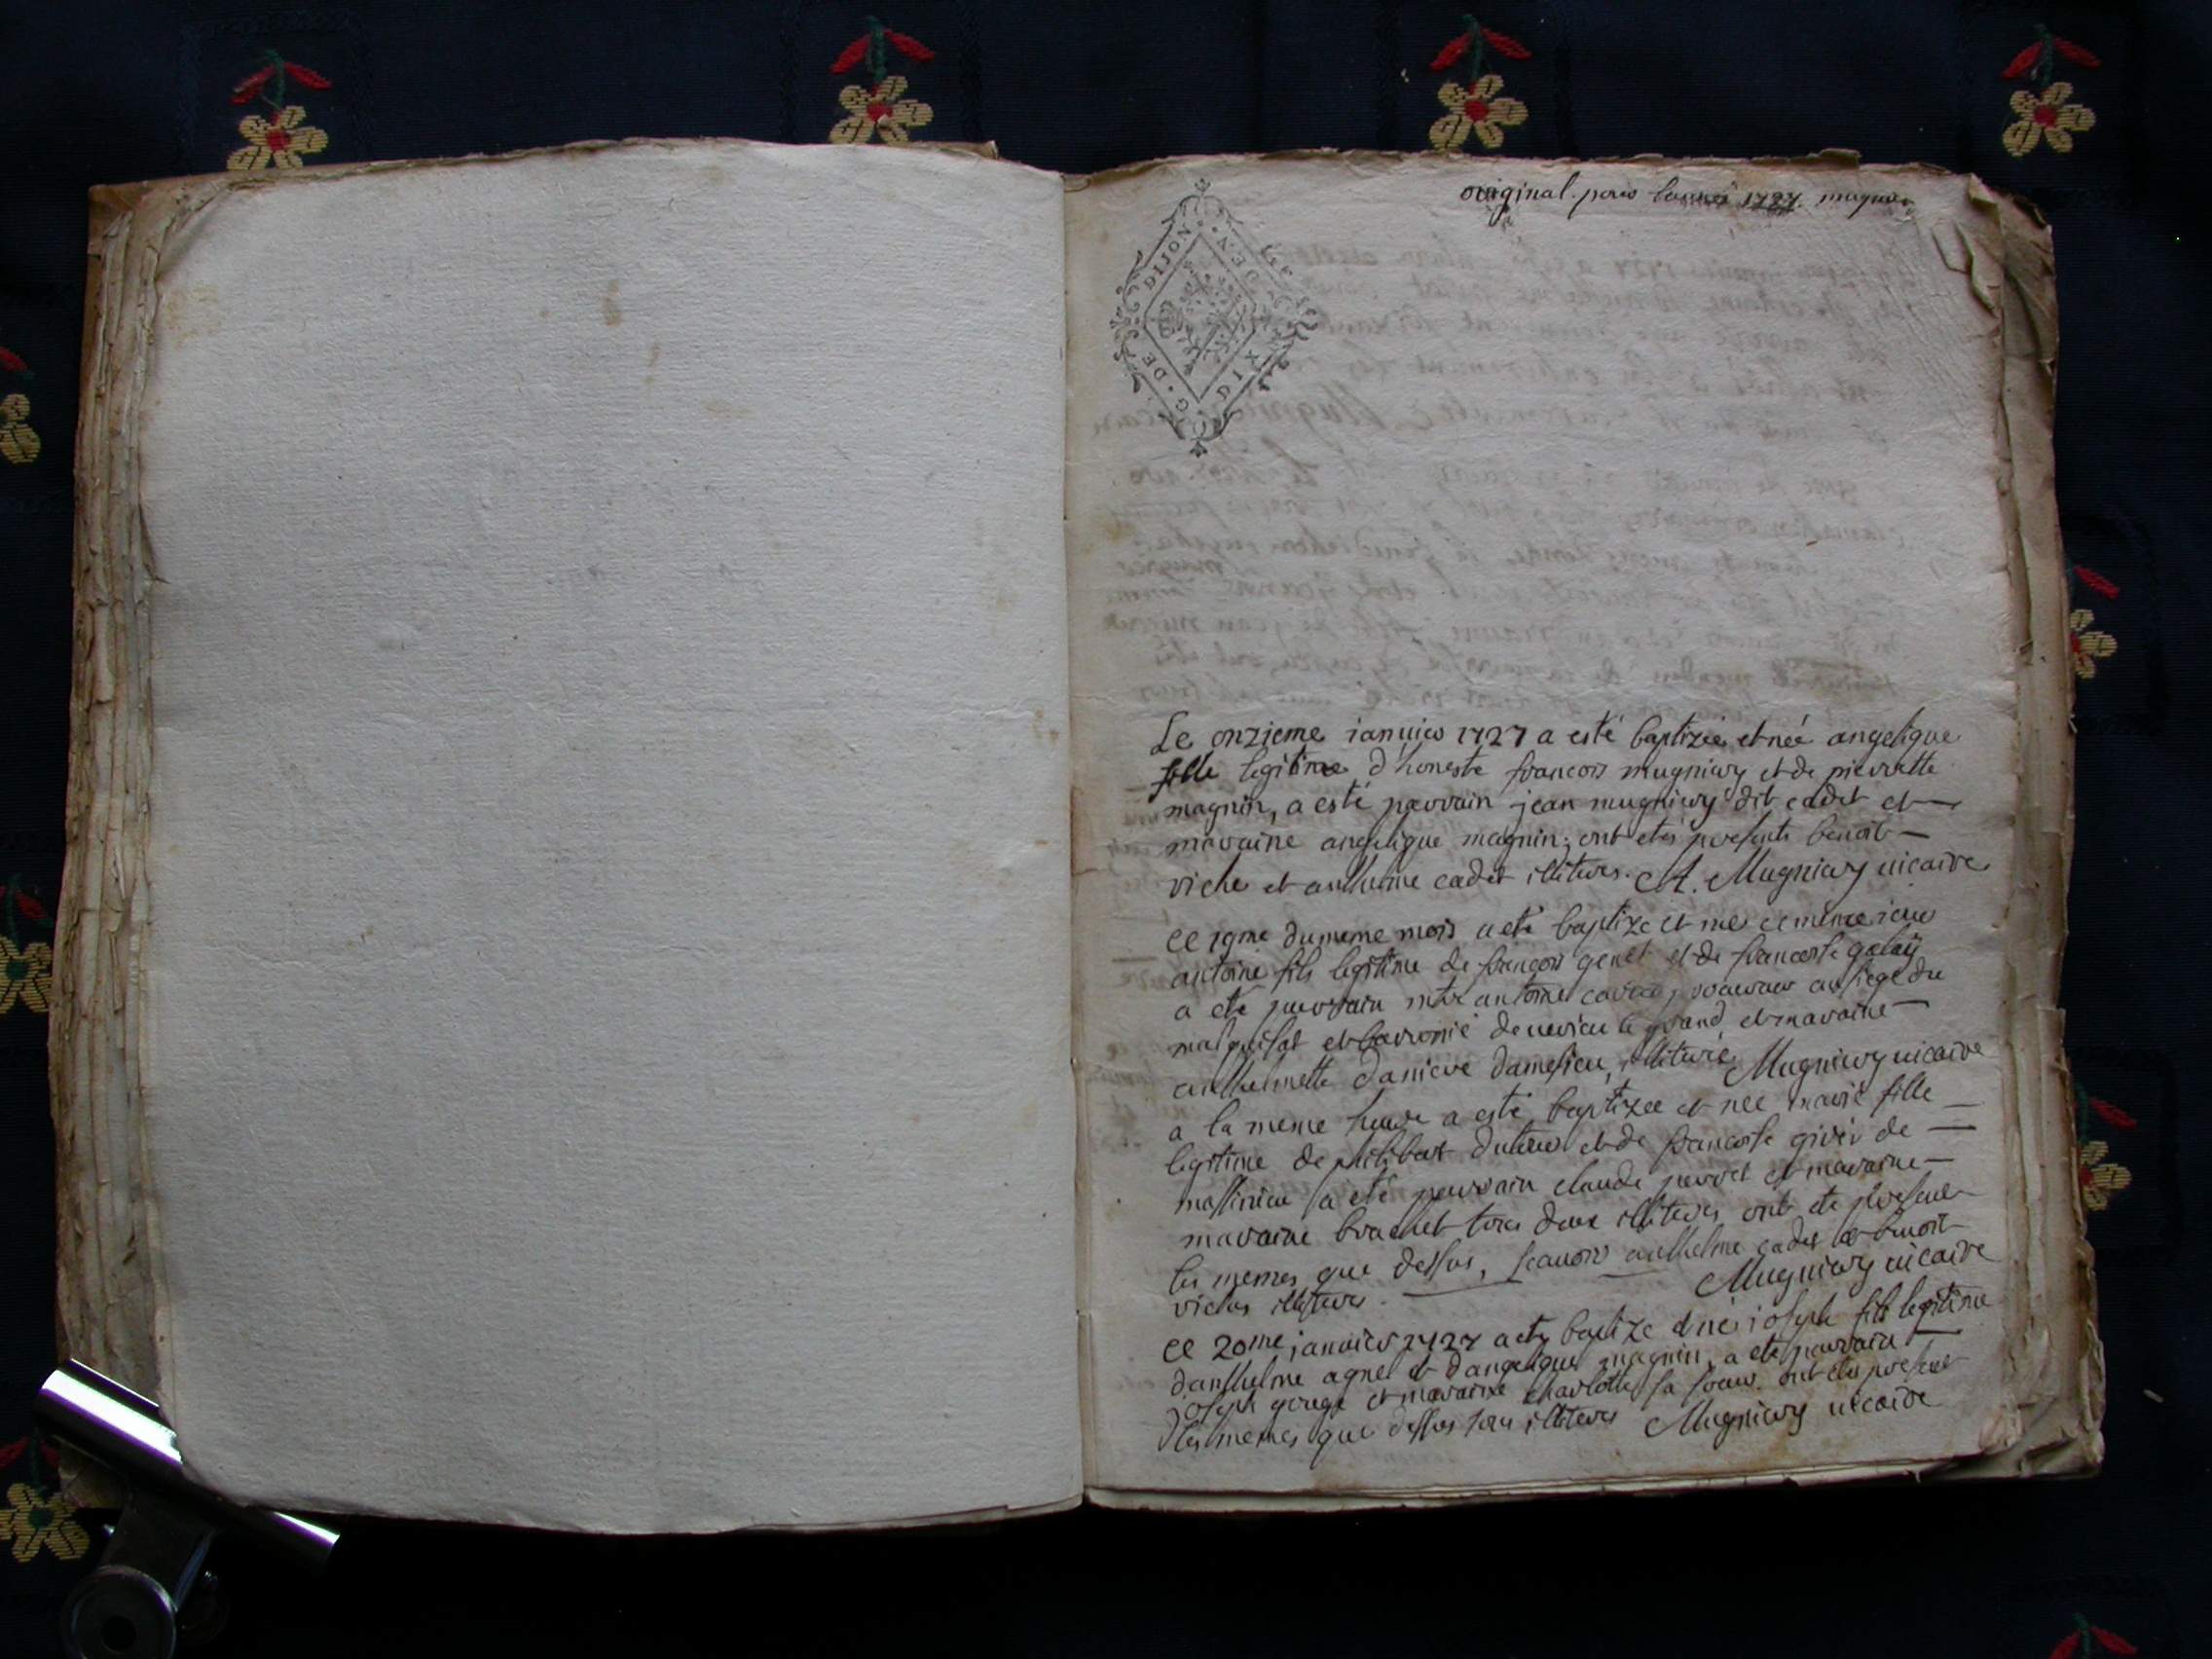 original pour l'année 1727
G. DE DIJON
DEN.
DIX
Le onzieme ianuier 1727 a esté baptizée et née angelique
fille legitime d'honeste francois mugniery et de pierrette
magnin, a esté parrain jean mugniery dit cadet et
maraine angelique magnin; ont etés presents benoit
viche et anthelme cadet illiteres. A. Mugniery uicaire
ce 19me du meme mois a eté baptize et né ce meme iour
antoine fils legitime de françois genet et de francoise galay
a eté parrain mtre antoine procureur au siege du
marquisat et baronie de uerieu le grand et maraine
anthelmette daniere damesieu, illiterée Mugniery uicaire
a la meme heure a esté baptizee et née marie fille
legitime de philibert et de francoise de
massinieu a eté parrain claude perret et maraine
maraine brachet tous deux illiteres ont ete presents
les memes que dessus, scauoir anthelme cadet & benoit
viches illiteres. Mugniery uicaire
ce 20me januier 1727 a eté baptize et né ioseph fils legitime
d'anthelme agnel et d'angelique magnin, a eté parrain
joseph et maraine charlotte sa soeur. ont etés presents
les memes que dessus tous illiteres Mugniery uicaire